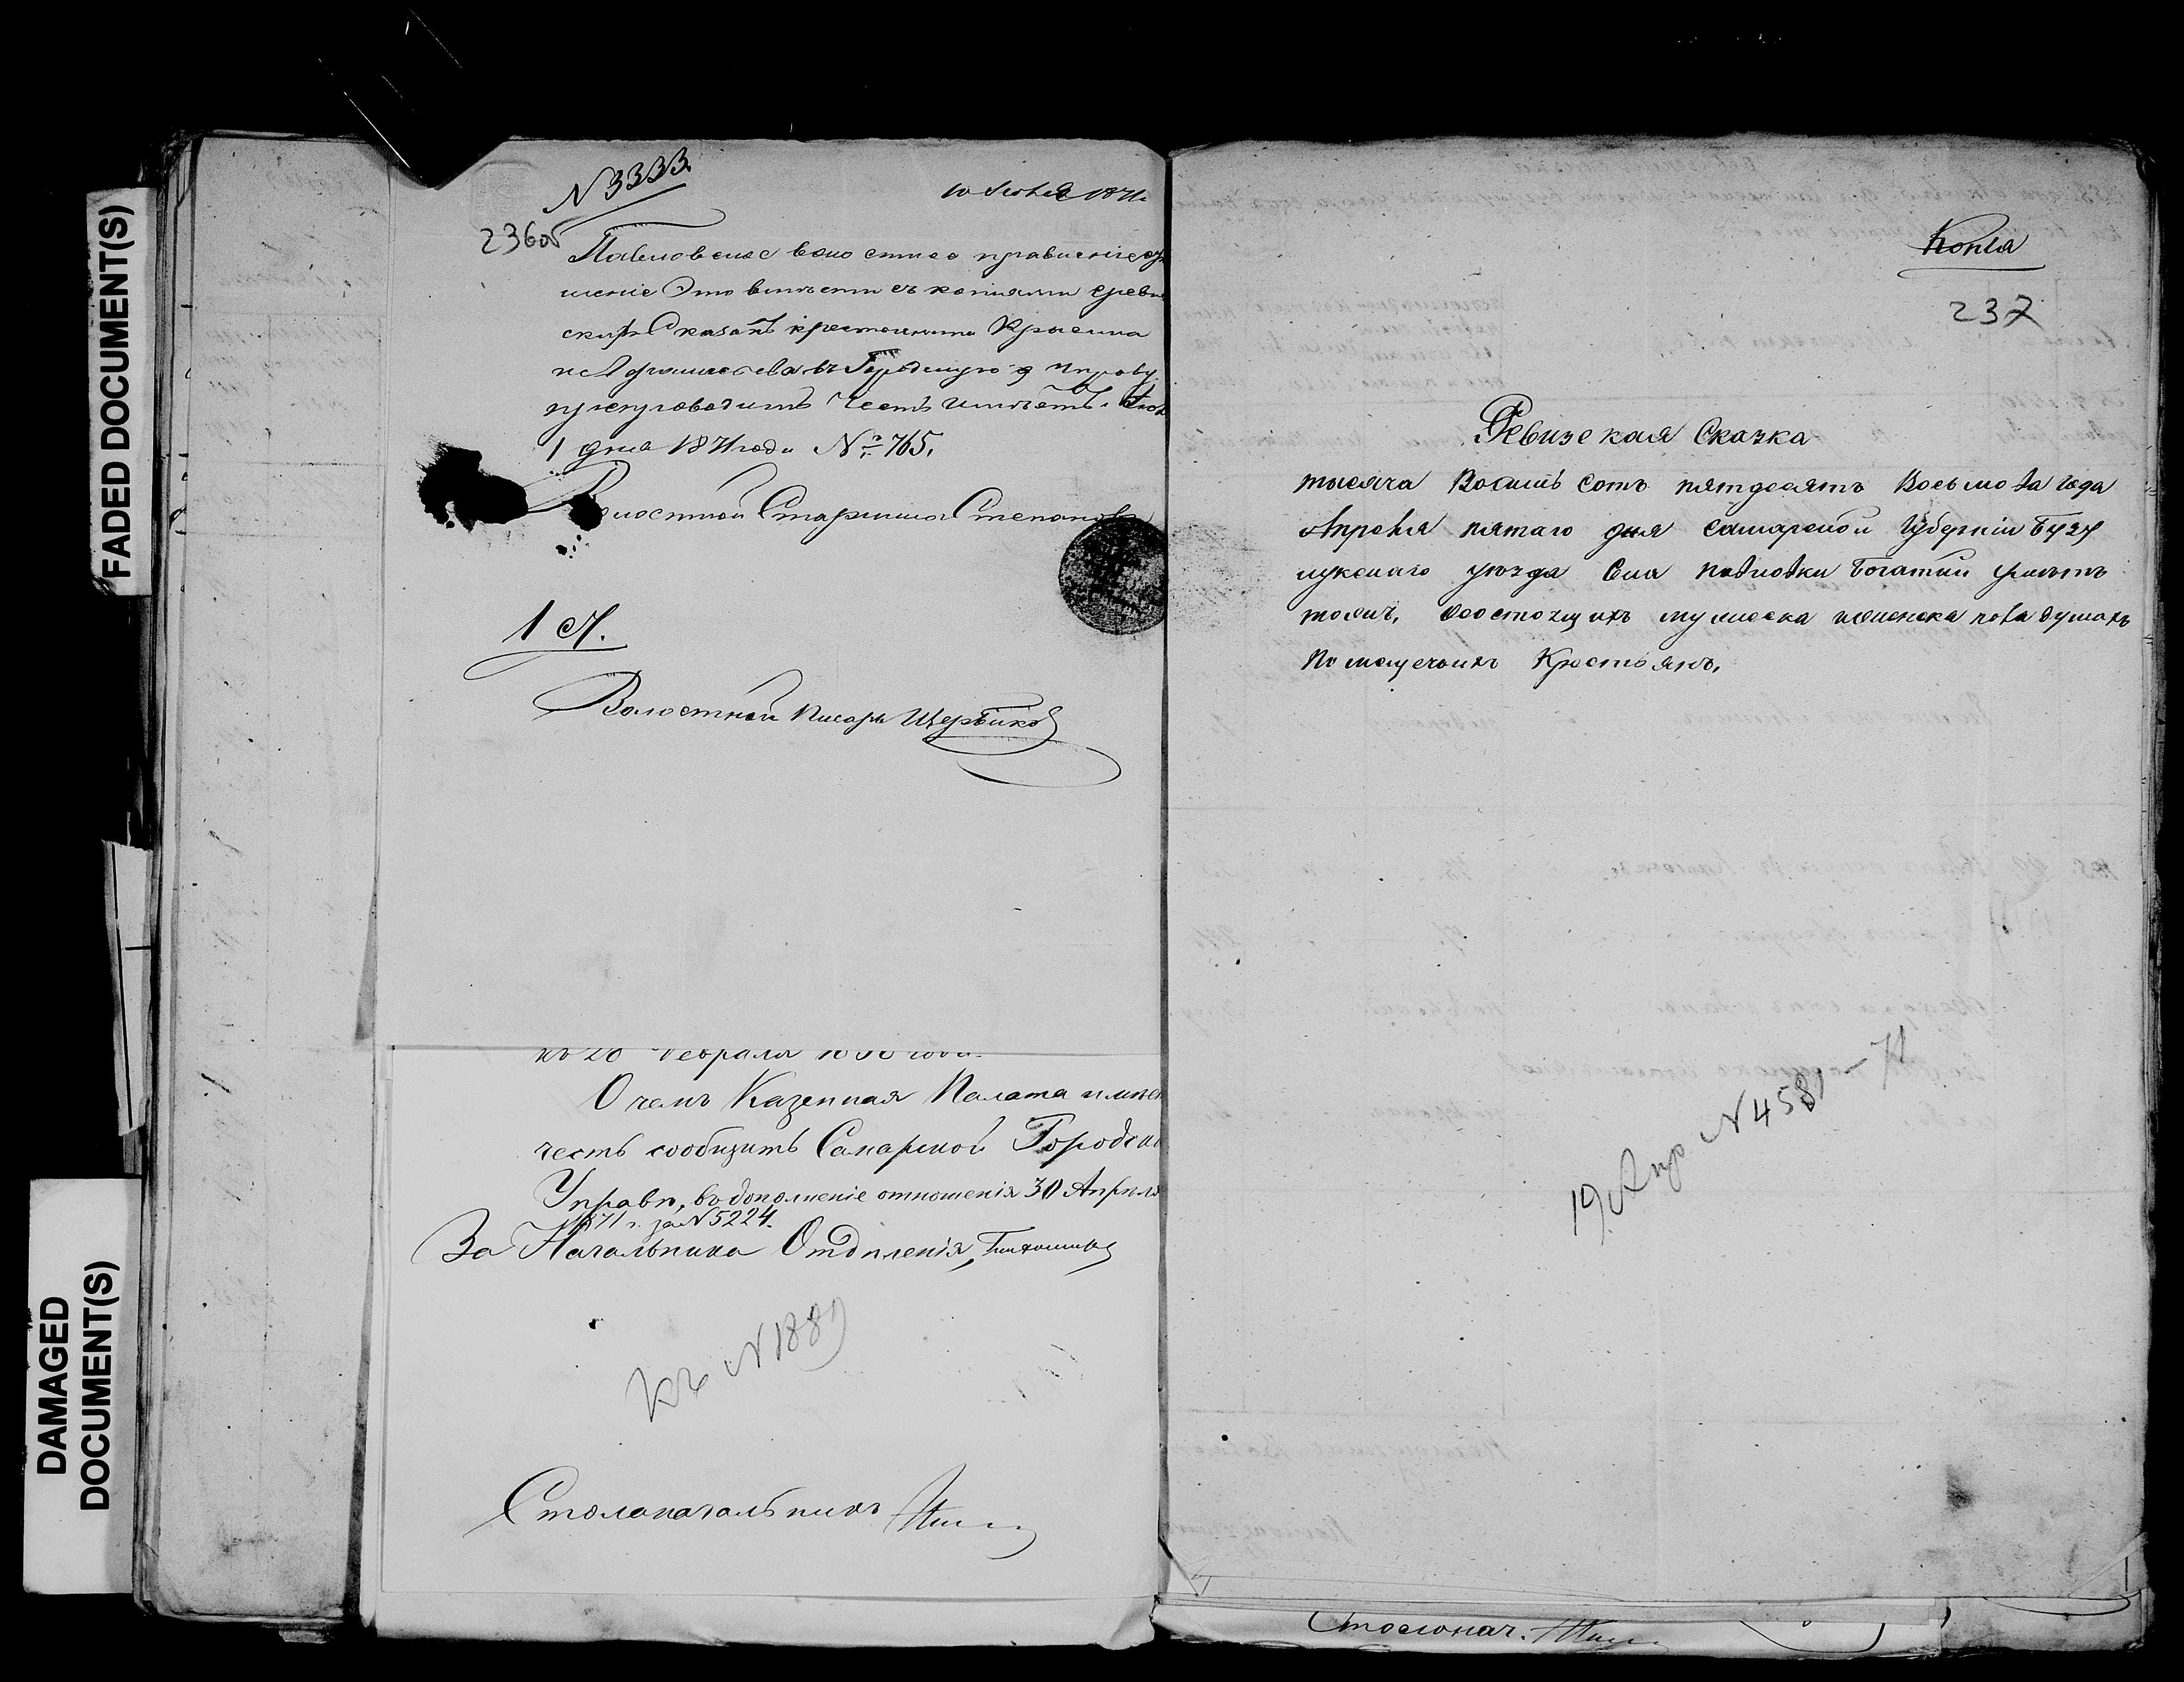 FADED DOCUMENT(S)
DAMAGED
DOCUMENT(S)
N 3333.
1871
236об
Павловское волостное правленіе
шеніе Это вместе съ копіями
Сказакъ крестьянина
въ Городскую Управу
препроводить Честь имѣетъ.
1 дня 1871 года № 765.
Волостной Старшина Степановъ
Волостной Писарь Щербаковъ
къ 28 Февраля года.
О чемъ Казенная Палата имѣет
честь сообщить Самарской Городско
Управѣ, въ дополненіе отношенія 30 Апрѣля
1871 г. за N 5224.
За Начальника Отдѣленія,
Къ N 1889
Столоначальникъ
Копія
237
Ревизская Сказка
тысяча Восемь сотъ пятдесятъ Восьмова года
Апреля пятаго дня Самарской Губерніи Бузу
лукскаго уезда Села Павловки Богатый
тожъ, Осостоящихъ мужеска иженска пола душахъ
Помещечьихъ Крестьянъ.
19 Апр N 4581 – 71
Столонач.